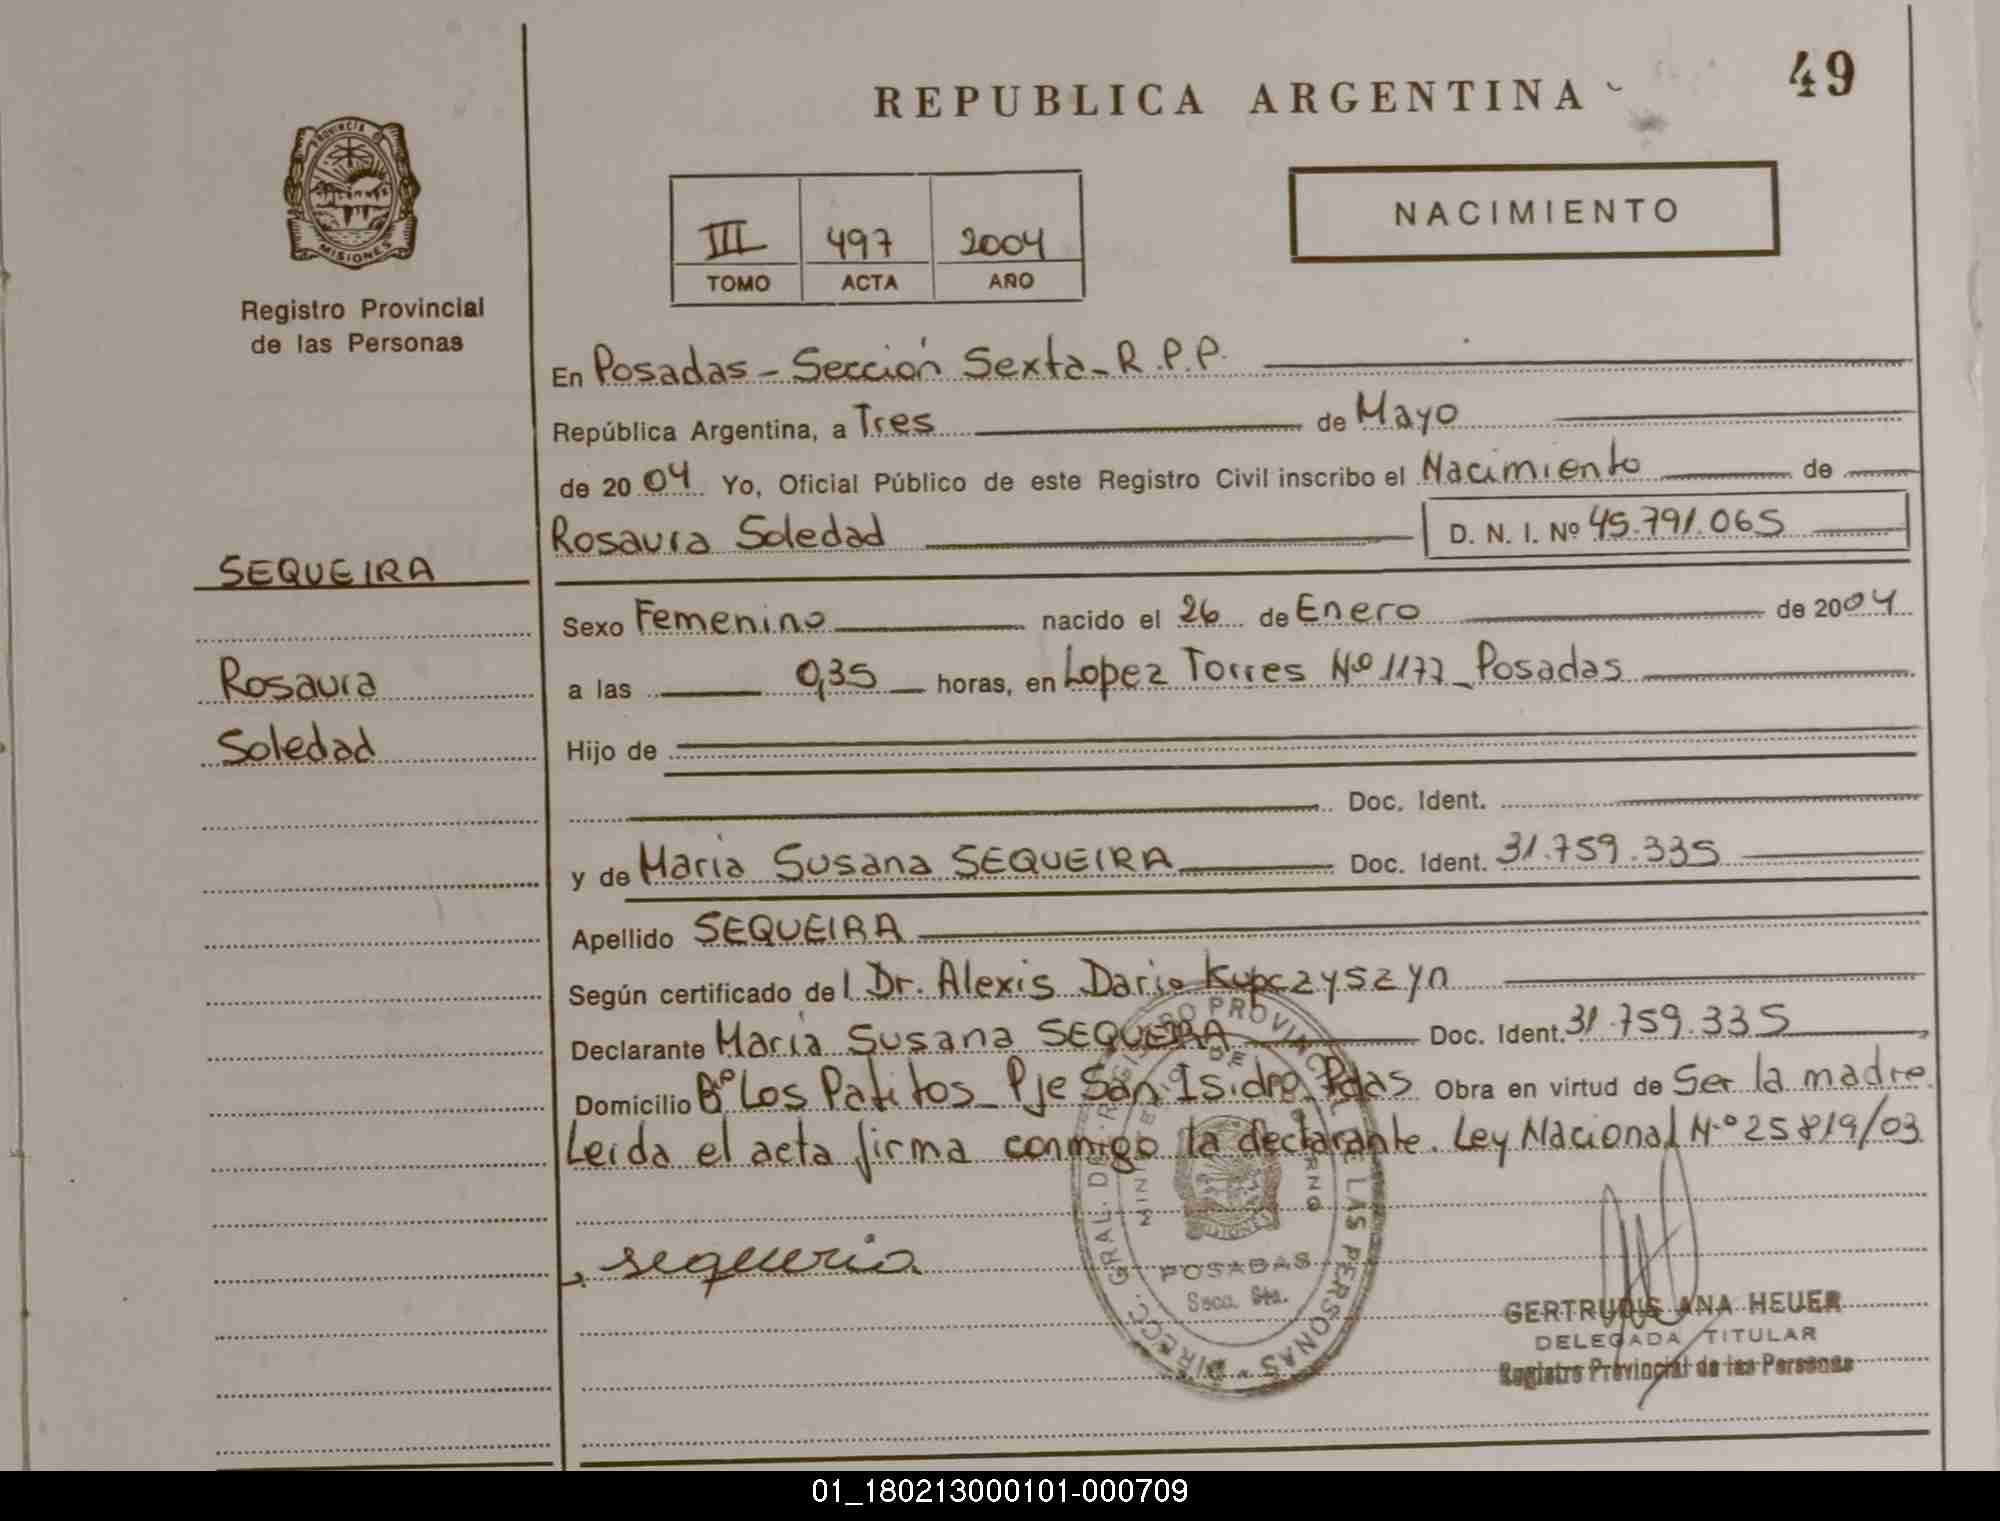 49
REPUBLICA ARGENTINA
PROVINCIA DE
MISIONES
Registro Provincial
de las Personas
NACIMIENTO
III 497 2004
TOMO ACTA AÑO
En Posadas - Sección Sexta - R.P.P.
República Argentina, a Tres de Mayo
de 2004 Yo, Oficial Público de este Registro Civil inscribo el Nacimiento de
Rosaura Soledad D. N. I. Nº 45.791.065
SEQUEIRA
Rosaura
Soledad
Sexo Femenino nacido el 26 de Enero de 2004
a las 0,35 horas, en Lopez Torres Nº 1177 - Posadas
Hijo de
Doc. Ident.
y de María Susana SEQUEIRA Doc. Ident. 31.759.335
Apellido SEQUEIRA
Según certificado del Dr. Alexis Dario Kupczyszyn
Declarante María Susana SEQUEIRA Doc. Ident. 31.759.335
Domicilio Bº Los Patitos - Pje San Isidro - Pdas Obra en virtud de Ser la madre.
Leída el acta firma conmigo la declarante. Ley Nacional N.º 25819/03
DIRECC. GRAL. DEL REGISTRO PROVINCIAL DE LAS PERSONAS
MINISTERIO DE GOBIERNO
MISIONES
POSADAS
Secc. 6ta.
GERTRUDIS ANA HEUER
DELEGADA TITULAR
Registro Provincial de las Personas
01_180213000101-000709